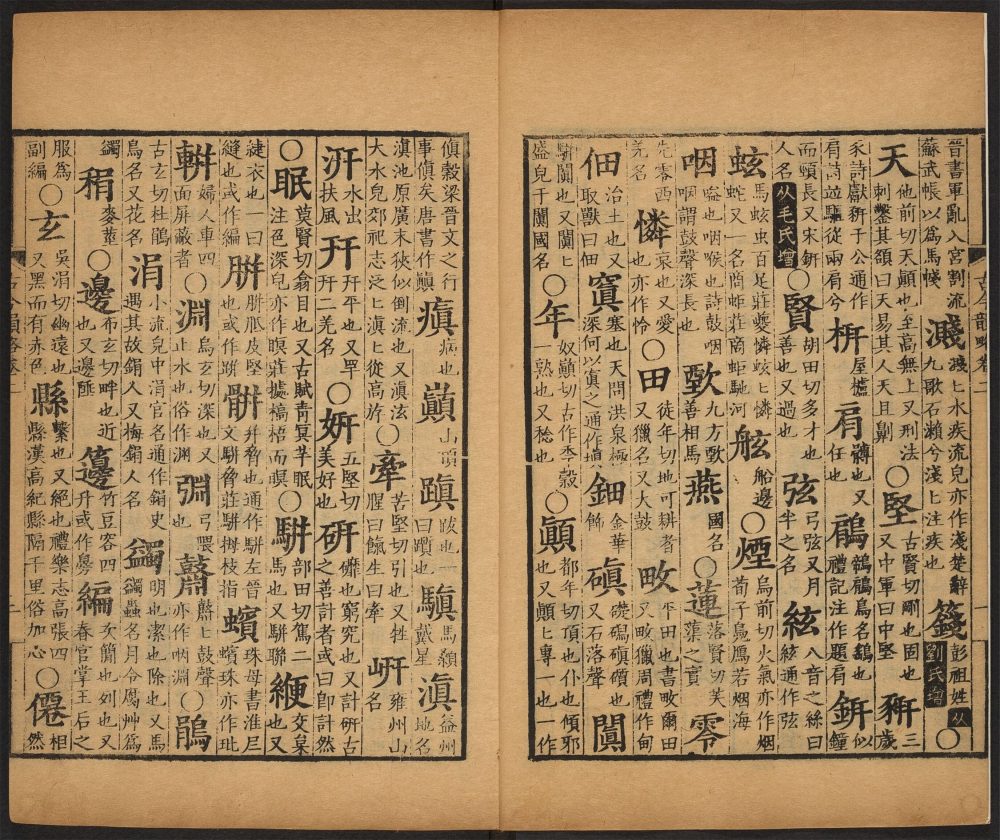 晉書軍亂入宮割流蘇武帳以為馬㡓 濺 濺濺水疾流皃亦作淺楚辭九歌石瀨兮淺淺注疾也 籛 彭祖姓 从劉氏增 ○
天 他前切天顚也至高無上又刑法刺鑿其額曰天易其人天且劓 ○堅 古賢切剛也固也又中軍曰中堅 豣 三歲
豕詩獻豣于公通作肩詩並驅從兩肩兮 枅 屋櫨 肩 髆也又任也 鵳 鶙鵳鳥名鷂也禮記注作題肩 鈃 似鐘
而頸長又宋鈃人名 从毛氏增 ○賢 胡田切多才也善也又過也 弦 弓弦又月半之名 絃 八音之絲曰絃通作弦
蚿 馬蚿虫百足莊夔憐蚿蚿憐蛇又一名商蚷莊商蚷馳河 舷 船邊 ○煙 烏前切火氣亦作烟荀子鳧鴈若烟海
咽 嗌也咽喉也詩鼓咽咽謂鼓聲深長也 歅 九方歅善相馬 燕 國名 ○蓮 落賢切芙蕖之實 零
先零西羌名 憐 哀也又愛也亦作怜 ○田 徒年切地可耕者又獵名又大鼓 畋 平田也書畋爾田又畋獵周禮作甸
佃 治土也又取獸曰佃 窴 塞也天問洪泉極深何以窴之通作塡 鈿 金華飾 磌 礎碣磌礩也又石落聲 闐
駢闐也又闐闐盛皃于闐國名 ○年 奴顚切古作秊穀一熟也又稔也 ○顚 都年切頂也仆也傾邪也又顚顚專一也一作
古今韻略卷二
傎穀梁晉文之行事傎矣唐書作顚 瘨 病也 巓 山頂 蹎 跋也一曰躓也 馬顙戴星 滇 益州地名
滇池原廣末狹似倒流也又滇㳒大水皃郊祀志泛泛滇滇從高斿 ○牽 苦堅切引也又牲腥曰餼生曰牽 岍 雍州山名
汧 水出扶風 幵 幵平也又罕幵二羌名 ○姸 五堅切美好也 硏 䃺也窮究也又計硏古之善計者或曰卽計然
○眠 莫賢切翕目也又古賦靑冥芊眠注色深皃亦作瞑莊據槁梧而瞑 ○騈 部田切駕二馬也又騈聯 緶 交枲也又
緁衣也一曰縫也或作編 胼 胼胝皮堅也或作跰 骿 幷脅也通作騈左晉文騈脅莊騈拇枝指 蠙 珠母書淮尼蠙珠亦作玭
軿 婦人車四面屏蔽者 ○淵 烏玄切深也又止水也俗作渊 弲 弓隈也 鼘 鼘鼘鼓聲亦作咽淵 ○鵑
古玄切杜鵑鳥名又花名 涓 小流皃中涓官名通作鋗史遇其故鋗人又梅鋗人名 蠲 明也潔也除也又馬蠲蟲名月令腐艸爲
蠲 䅌 麥莖 ○邊 布玄切畔也近也又邊陲 籩 竹豆容四升或作 編 次簡也又列也又春官掌王后之
服爲副編 ○玄 吳涓切幽遠也又黑而有赤色 縣 繫也又絕也禮樂志高張四縣縣漢高紀縣隔千里俗加心 ○儇 相然